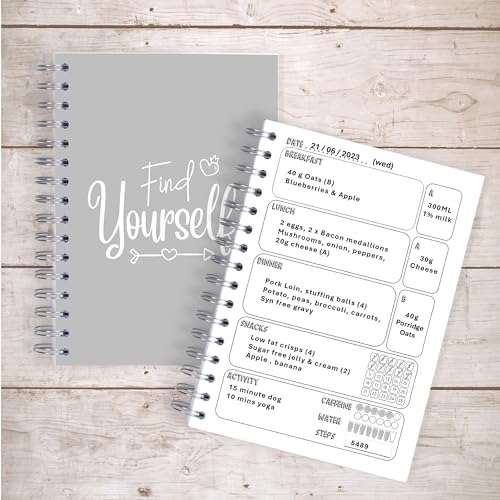 Find
Yourself
DATE. 21/06/2023.. (wed)
BREAKFAST
40 g Oats (B)
Blueberries & Apple
A
300ML
1% milk
LUNCH
2 eggs, 2 x Bacon medallions
Mushrooms, onion, peppers,
20g cheese (A)
A
30g
Cheese
DINNER
Pork Loin, stuffing balls (4)
Potato, peas, broccoli, carrots,
Syn free gravy
B
40g
Porridge
Oats
SNACKS
Low fat crisps (4)
Sugar free jelly & cream (2)
Apple , banana
ACTIVITY
15 minute dog
10 mins yoga
CAFFEINE
WATER
STEPS
5489